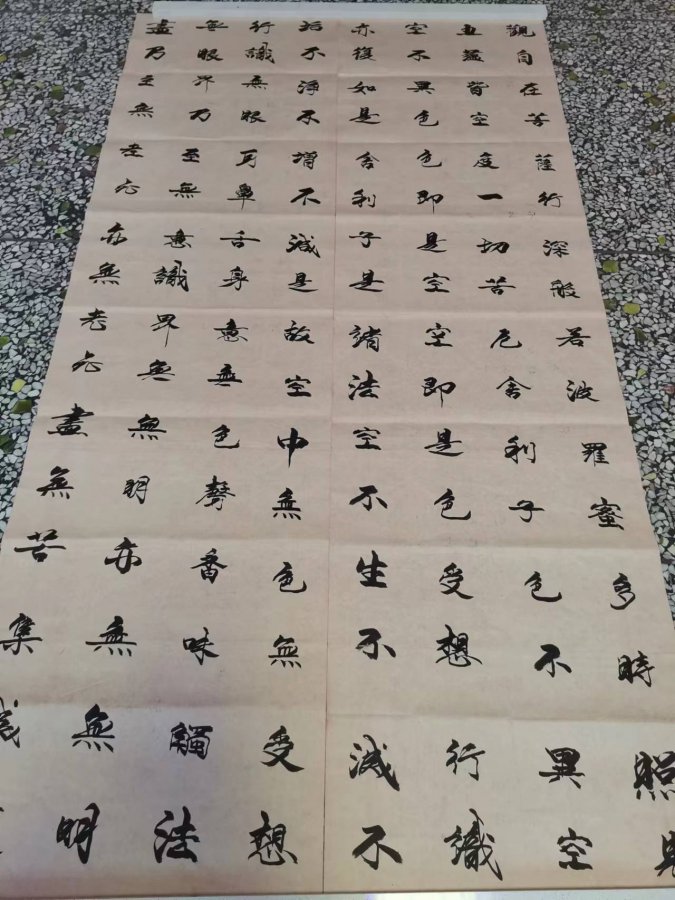 觀自在菩薩行深般若波羅蜜多時照見
五蘊皆空度一切苦厄舍利子色不異空
空不異色色即是空空即是色受想行識
亦復如是舍利子是諸法空不生不滅不
垢不淨不增不減是故空中無色無受想
行識無眼耳鼻舌身意無色聲香味觸法
無眼界乃至無意識界無無明亦無無明
盡乃至無老死亦無老死盡無苦集滅